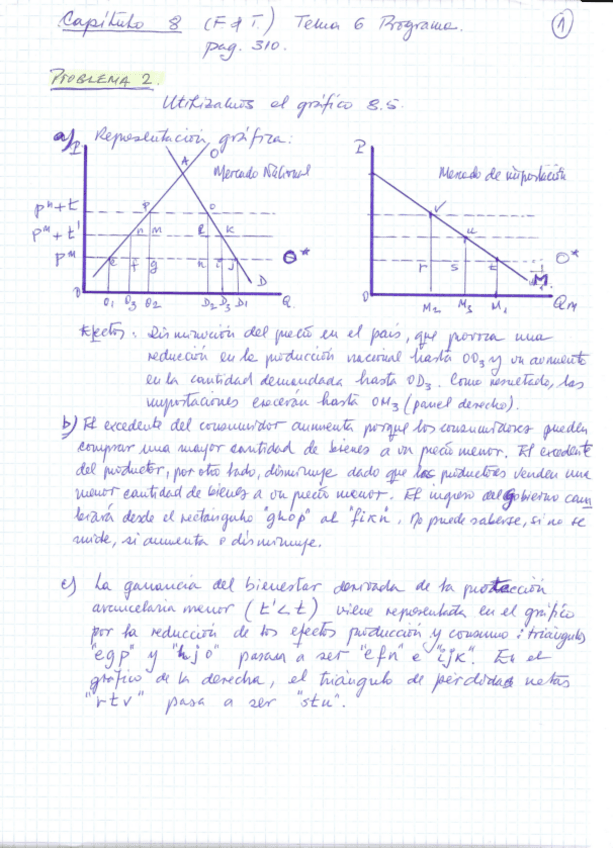 Capítulo 8 (F. & T.) Tema 6 Programa. 1
pag. 310.
PROBLEMA 2.
Utilizamos el gráfico 8.5.
a) Representación gráfica:
P A O Mercado Nacional
P Mercado de importación
Pᵐ+t P O
Pᵐ+t' n m l k
Pᵐ e f g h i j O*
O O1 O3 O2 D2 D3 D1 D Q
v u O*
r s t M
O M2 M3 M1 QM
Efectos: Disminución del precio en el país, que provoca una
reducción en la producción nacional hasta OO3 y un aumento
en la cantidad demandada hasta OD3. Como resultado, las
importaciones crecerán hasta OM3 (panel derecho).
b) El excedente del consumidor aumenta porque los consumidores pueden
comprar una mayor cantidad de bienes a un precio menor. El excedente
del productor, por otro lado, disminuye dado que los productores venden una
menor cantidad de bienes a un precio menor. El ingreso del gobierno cam
biará desde el rectángulo "ghop" al "fikn". No puede saberse, si no se
mide, si aumenta o disminuye.
c) La ganancia del bienestar derivada de la protección
arancelaria menor (t'<t) viene representada en el gráfico
por la reducción de los efectos producción y consumo: triángulos
"egp" y "hjo" pasan a ser "efn" e "ijk". En el
gráfico de la derecha, el triángulo de pérdidas netas
"rtv" pasa a ser "stu".